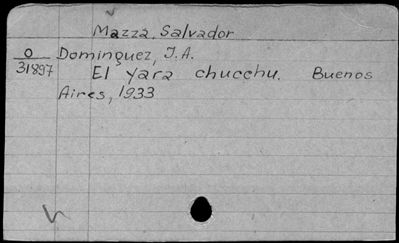 Mazza, Salvador
O Dominguez, J.A.
31897 El yara chucchu. Buenos
Aires, 1933